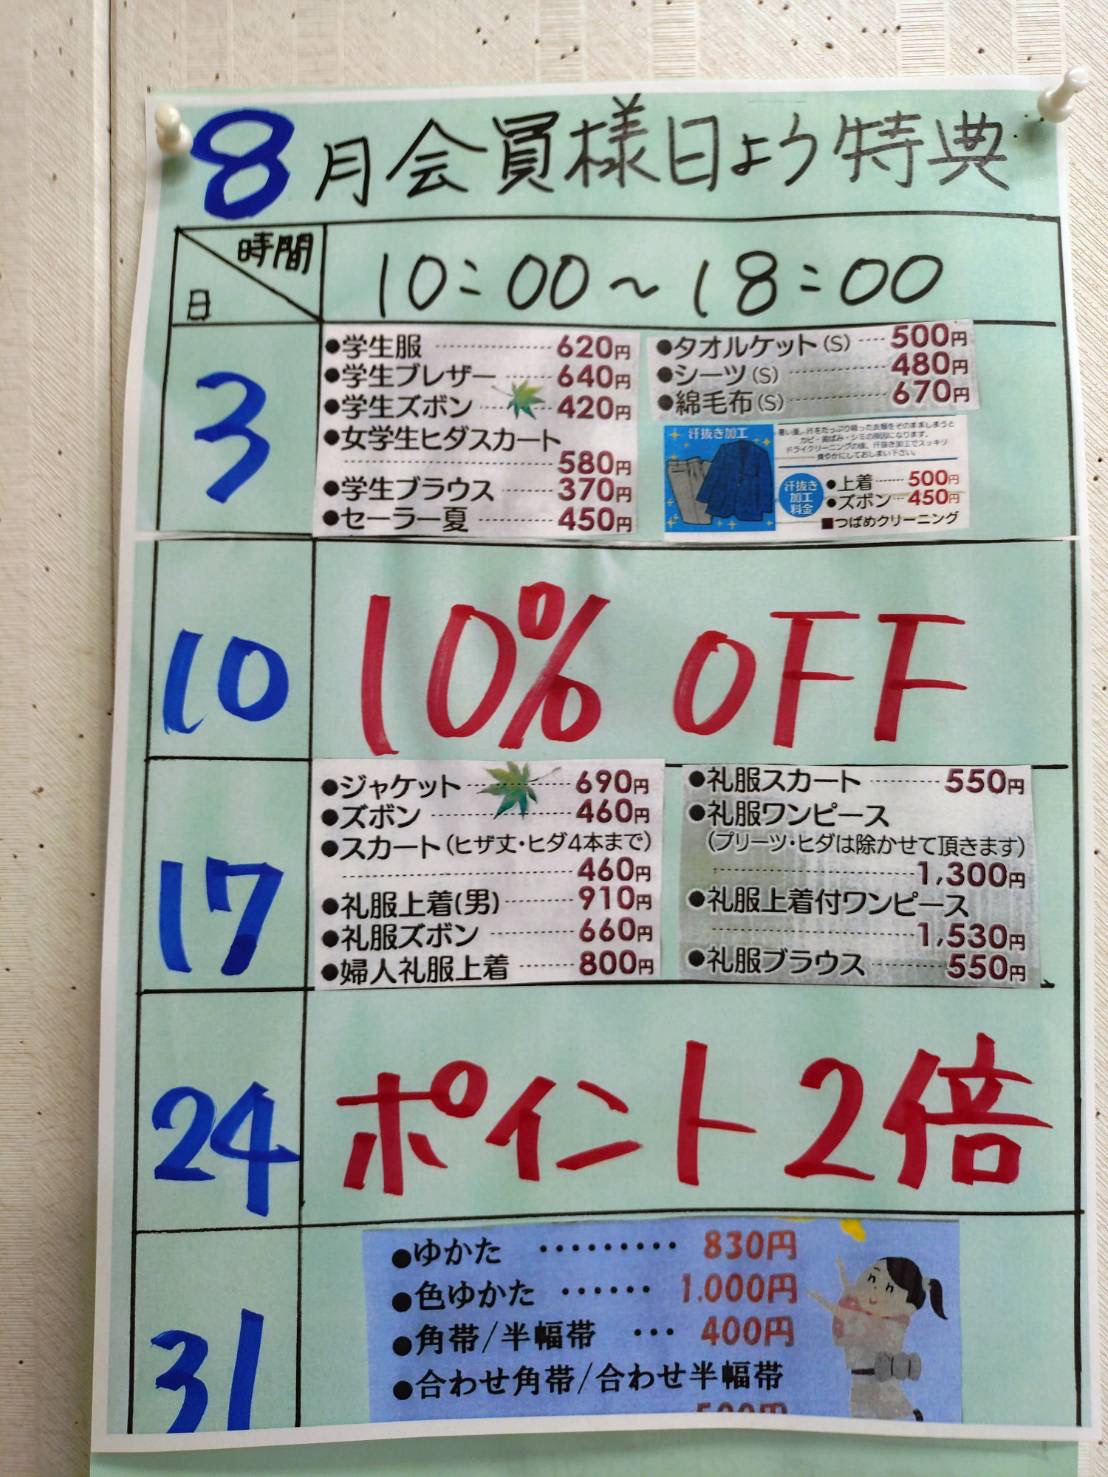 8月会員様日よう特典
時間
日
10:00~18:00
3
●学生服 620円
●学生ブレザー 640円
●学生ズボン 420円
●女学生ヒダスカート
580円
●学生ブラウス 370円
●セーラー夏 450円
●タオルケット(S) 500円
●シーツ(S) 480円
●綿毛布(S) 670円
汗抜き加工
ドライクリーニングの後、汗抜き加工でスッキリ
爽やかにしておしまい下さい。
汗抜き
加工
料金
●上着 500円
●ズボン 450円
■つばめクリーニング
10
10% OFF
17
●ジャケット 690円
●ズボン 460円
●スカート(ヒザ丈・ヒダ4本まで)
460円
●礼服上着(男) 910円
●礼服ズボン 660円
●婦人礼服上着 800円
●礼服スカート 550円
●礼服ワンピース
(プリーツ・ヒダは除かせて頂きます)
1,300円
●礼服上着付ワンピース
1,530円
●礼服ブラウス 550円
24
ポイント2倍
31
●ゆかた ········· 830円
●色ゆかた ······ 1.000円
●角帯/半幅帯 ··· 400円
●合わせ角帯/合わせ半幅帯